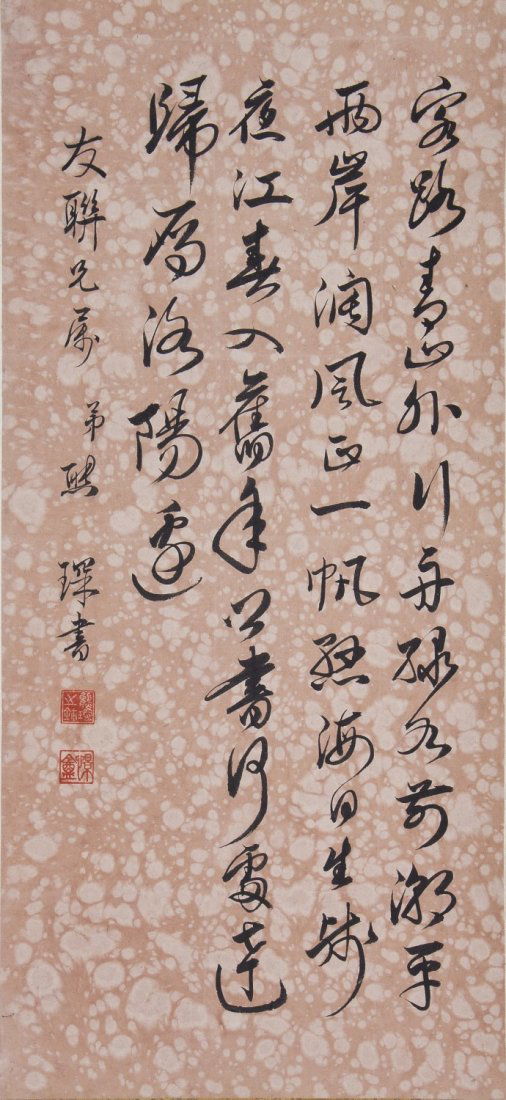 客路青山外行舟綠水前潮平
兩岸濶風正一帆懸海日生殘
夜江春入舊年鄉書何處達
歸雁洛陽邊
友聯兄屬 弟 琛書